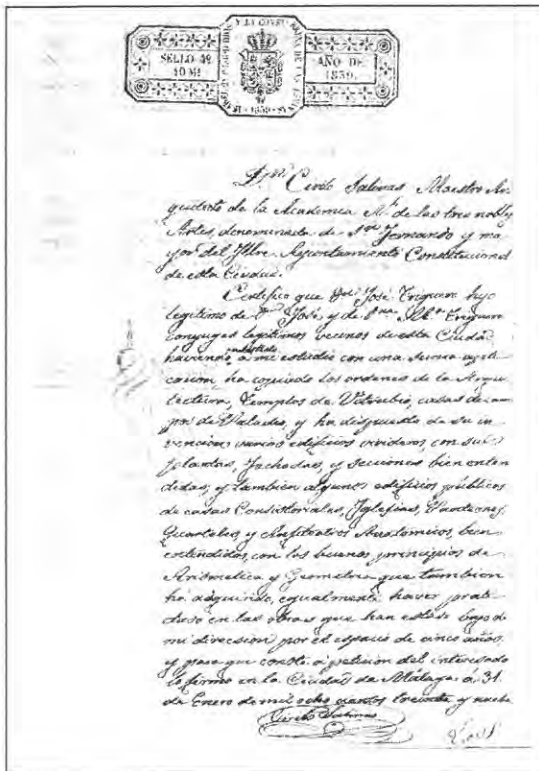 SELLO 4º
40 Ms
AÑO DE
1839.
Dn. Cirilo Salinas Maestro Ar-
quitecto de la Academia Nl. de las tres nobles
Artes, denominada de Sn. Fernando y ma-
yor del Ylltre. Ayuntamiento Constitucional
de esta Ciudad.
Certifico que Dn. José Trigueros hijo
legitimo de Dn. José y de Dña.
conyuges legitimos vecinos de esta Ciudad,
haviendo asistido a mi estudio con una suma apli-
cacion ha copiado los ordenes de la Arqui-
tectura, Templos de Vitrubio, casas de cam-
po de Paladio, y ha dispuesto de su in-
vencion varios edificios con sus
plantas, fachadas, y secciones bien enten-
didas, y tambien algunos edificios públicos
de casas Consistoriales, Iglesias, Panteones,
Quarteles, y Anfiteatros Anatómicos, bien
entendidos, con los buenos principios de
Arismetica y Geometria que tambien
ha adquirido, egualmente haver prac-
ticado en las obras que han estado bajo de
mi direccion por el espacio de cinco años,
y para que conste á peticion del interesado
lo firmo en la Ciudad de Málaga á 31
de Enero de mil ocho cientos treinta y nueve
Cirilo Salinas